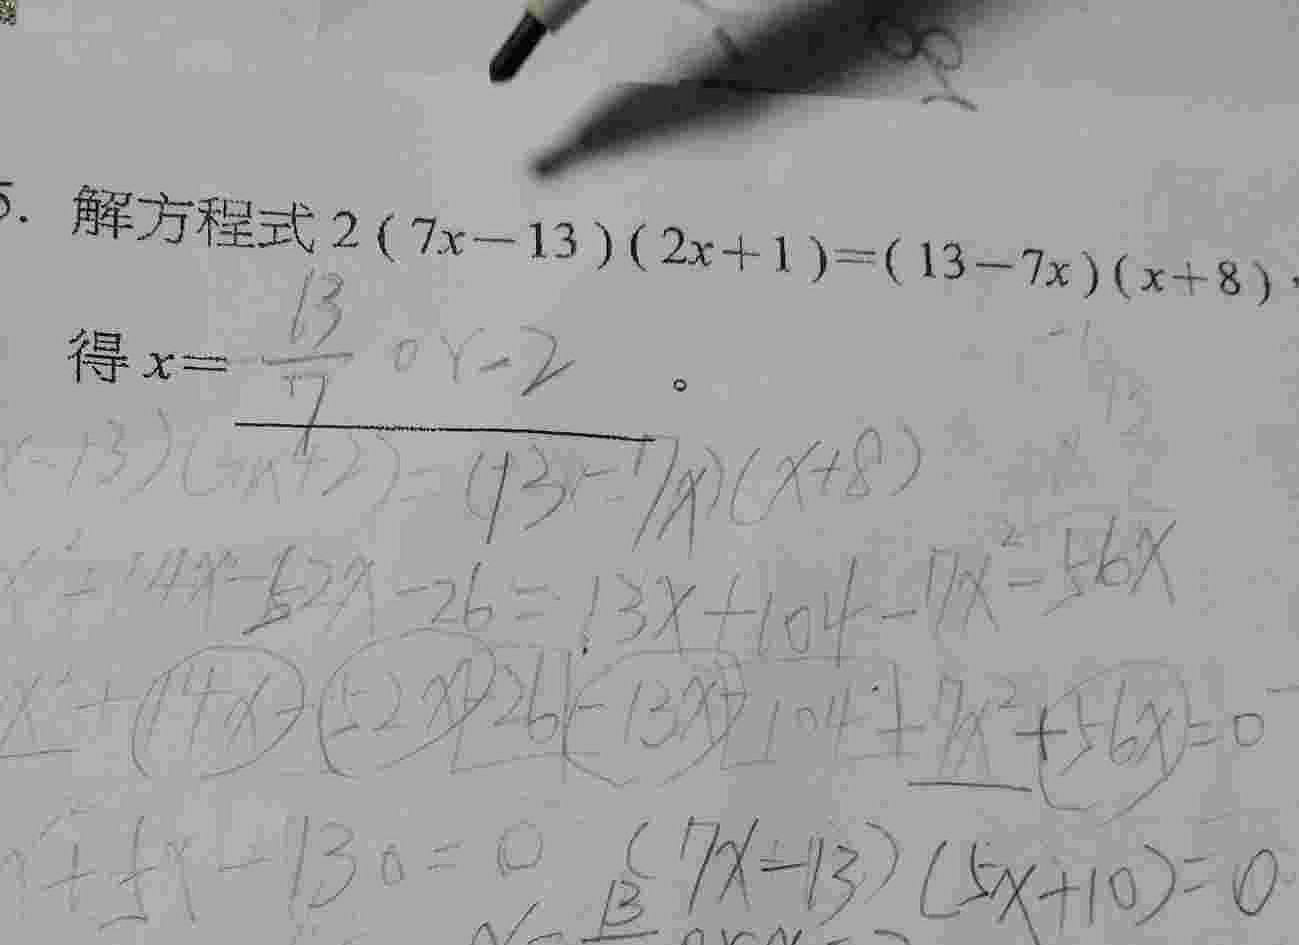 5. 解方程式2(7x-13)(2x+1)=(13-7x)(x+8),
得x= 13/7 or -2 。
x-13)(4x+2)=(13-7x)(x+8)
x²+14x-52x-26=13x+104-7x²-56x
x²+14x-52x-26-13x-104+7x²+56x=0
+5x-130=0
(7x-13)(5x+10)=0